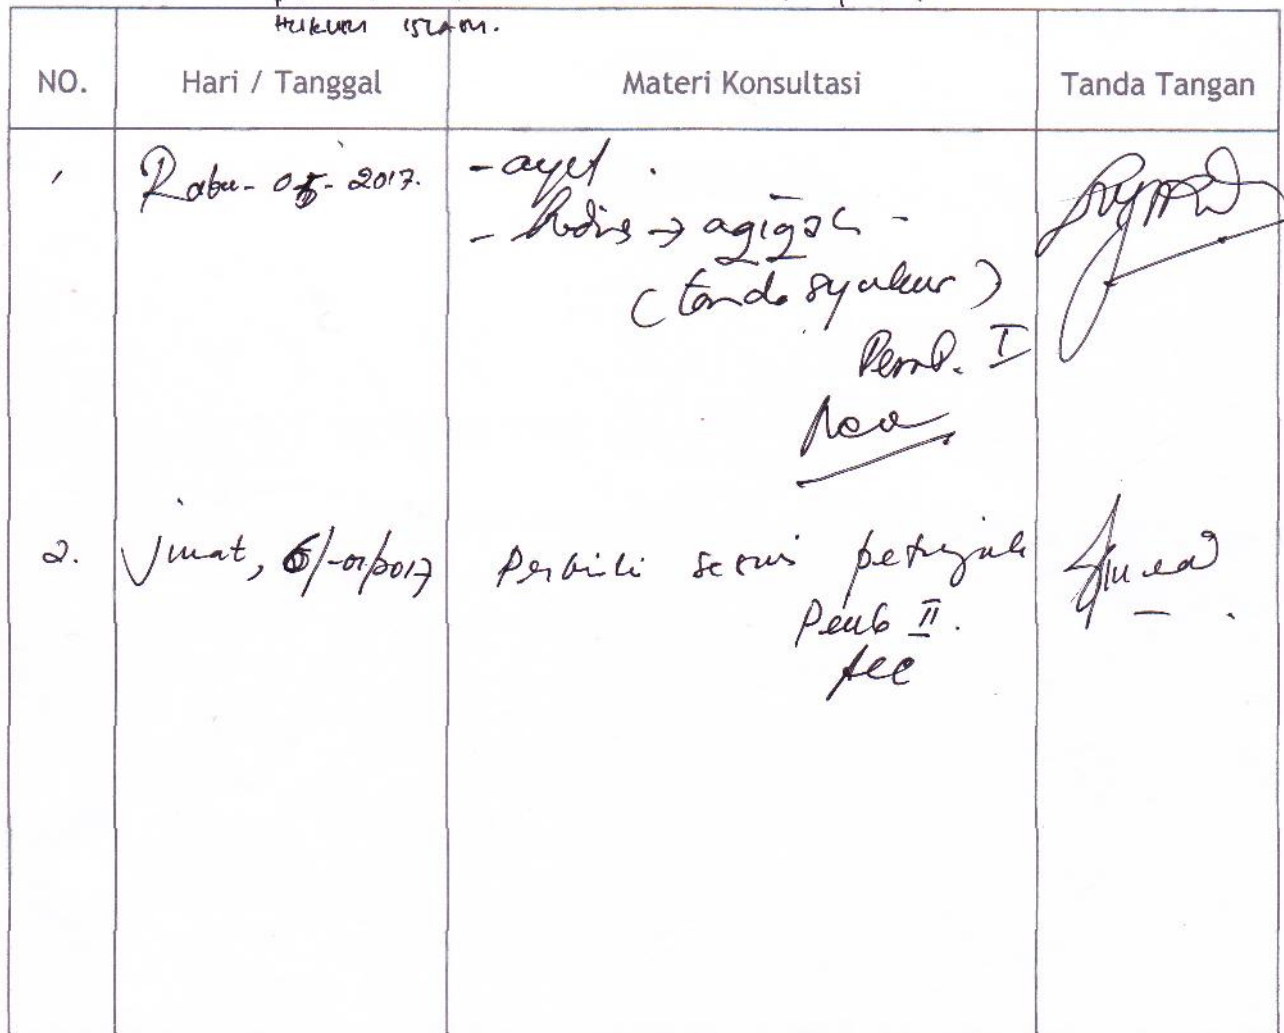 Hukum Islam.
NO. Hari / Tanggal Materi Konsultasi Tanda Tangan
1 Rabu - 05 - 2017. - ayat.
- hadis → aqiqah -
(tanda syukur)
Pemb. I
2. Jumat, 6/-01/2017 Perbaiki sesuai petunjuk
Pemb II.
Acc